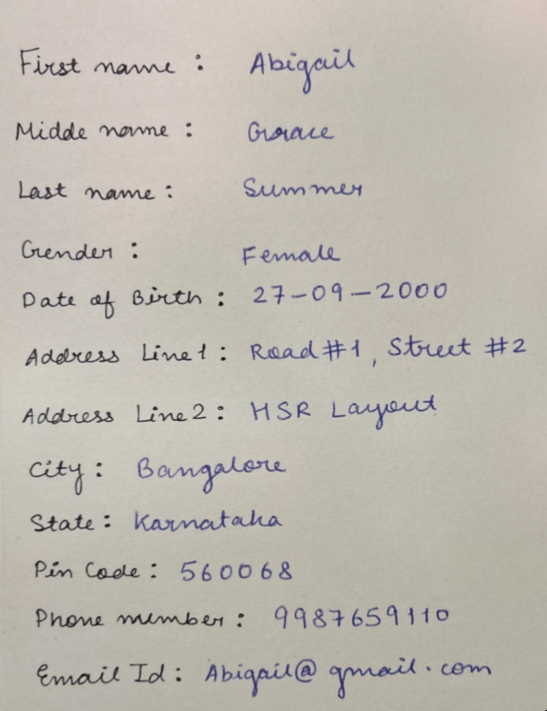 First name : Abigail
Midde name : Grace
Last name : Summer
Gender : Female
Date of Birth : 27-09-2000
Address Line1 : Road #1, Street #2
Address Line2 : HSR Layout
City : Bangalore
State : Karnataka
Pin Code : 560068
Phone number : 9987659110
Email Id : Abigail@gmail.com